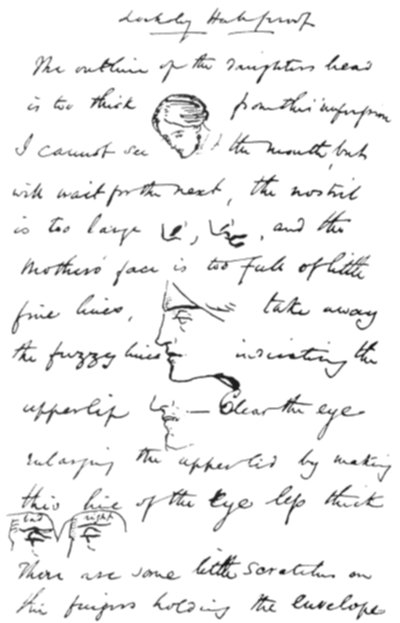 Locksley Hall proof
The outline of the daughters head
is too thick from this impression
I cannot see the mouth, but
will wait for the next, the nostril
is too large , , and the
Mothers' face is too full of little
fine lines, take away
the fuzzy lines indicating the
upper lip — Clear the eye
enlarging the upper lid by making
this line of the Eye less thick
bad right
There are some little scratches on
the fingers holding the envelope